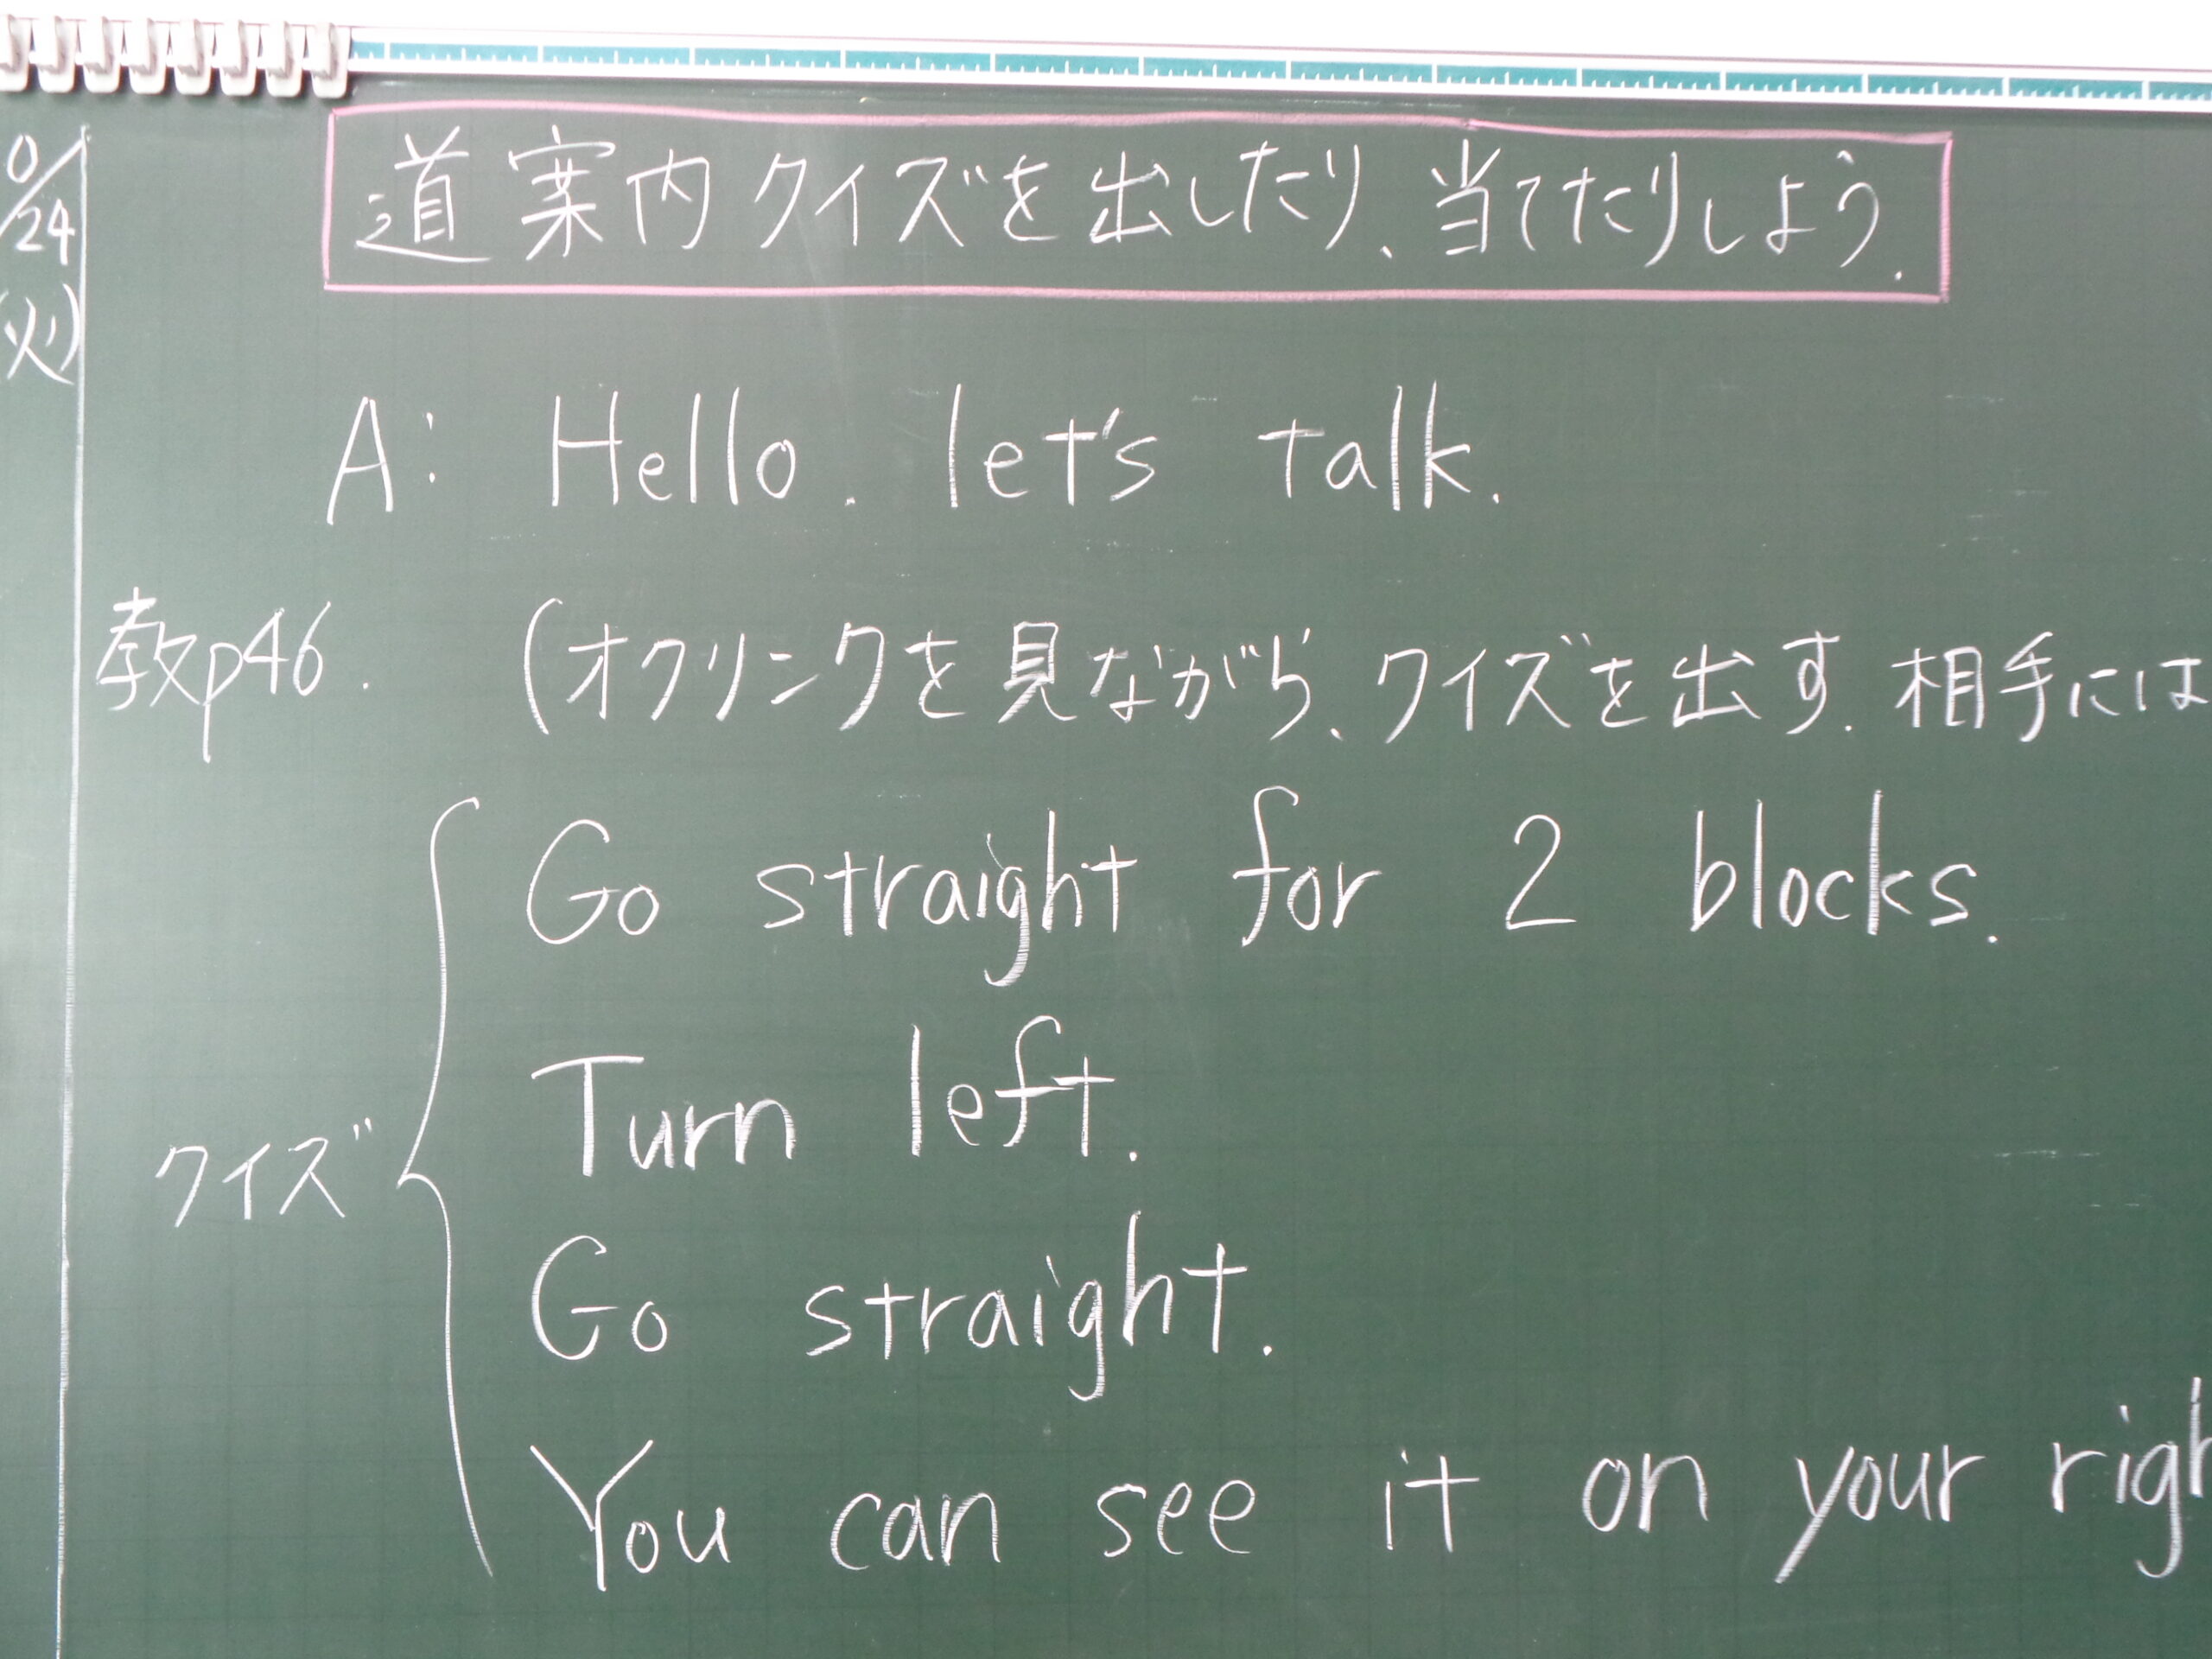 0/24
(火)
道案内クイズを出したり、当てたりしよう.
A: Hello. let's talk.
教p46.
(オクリンクを見ながら、クイズを出す. 相手には
クイズ
Go straight for 2 blocks.
Turn left.
Go straight.
You can see it on your righ